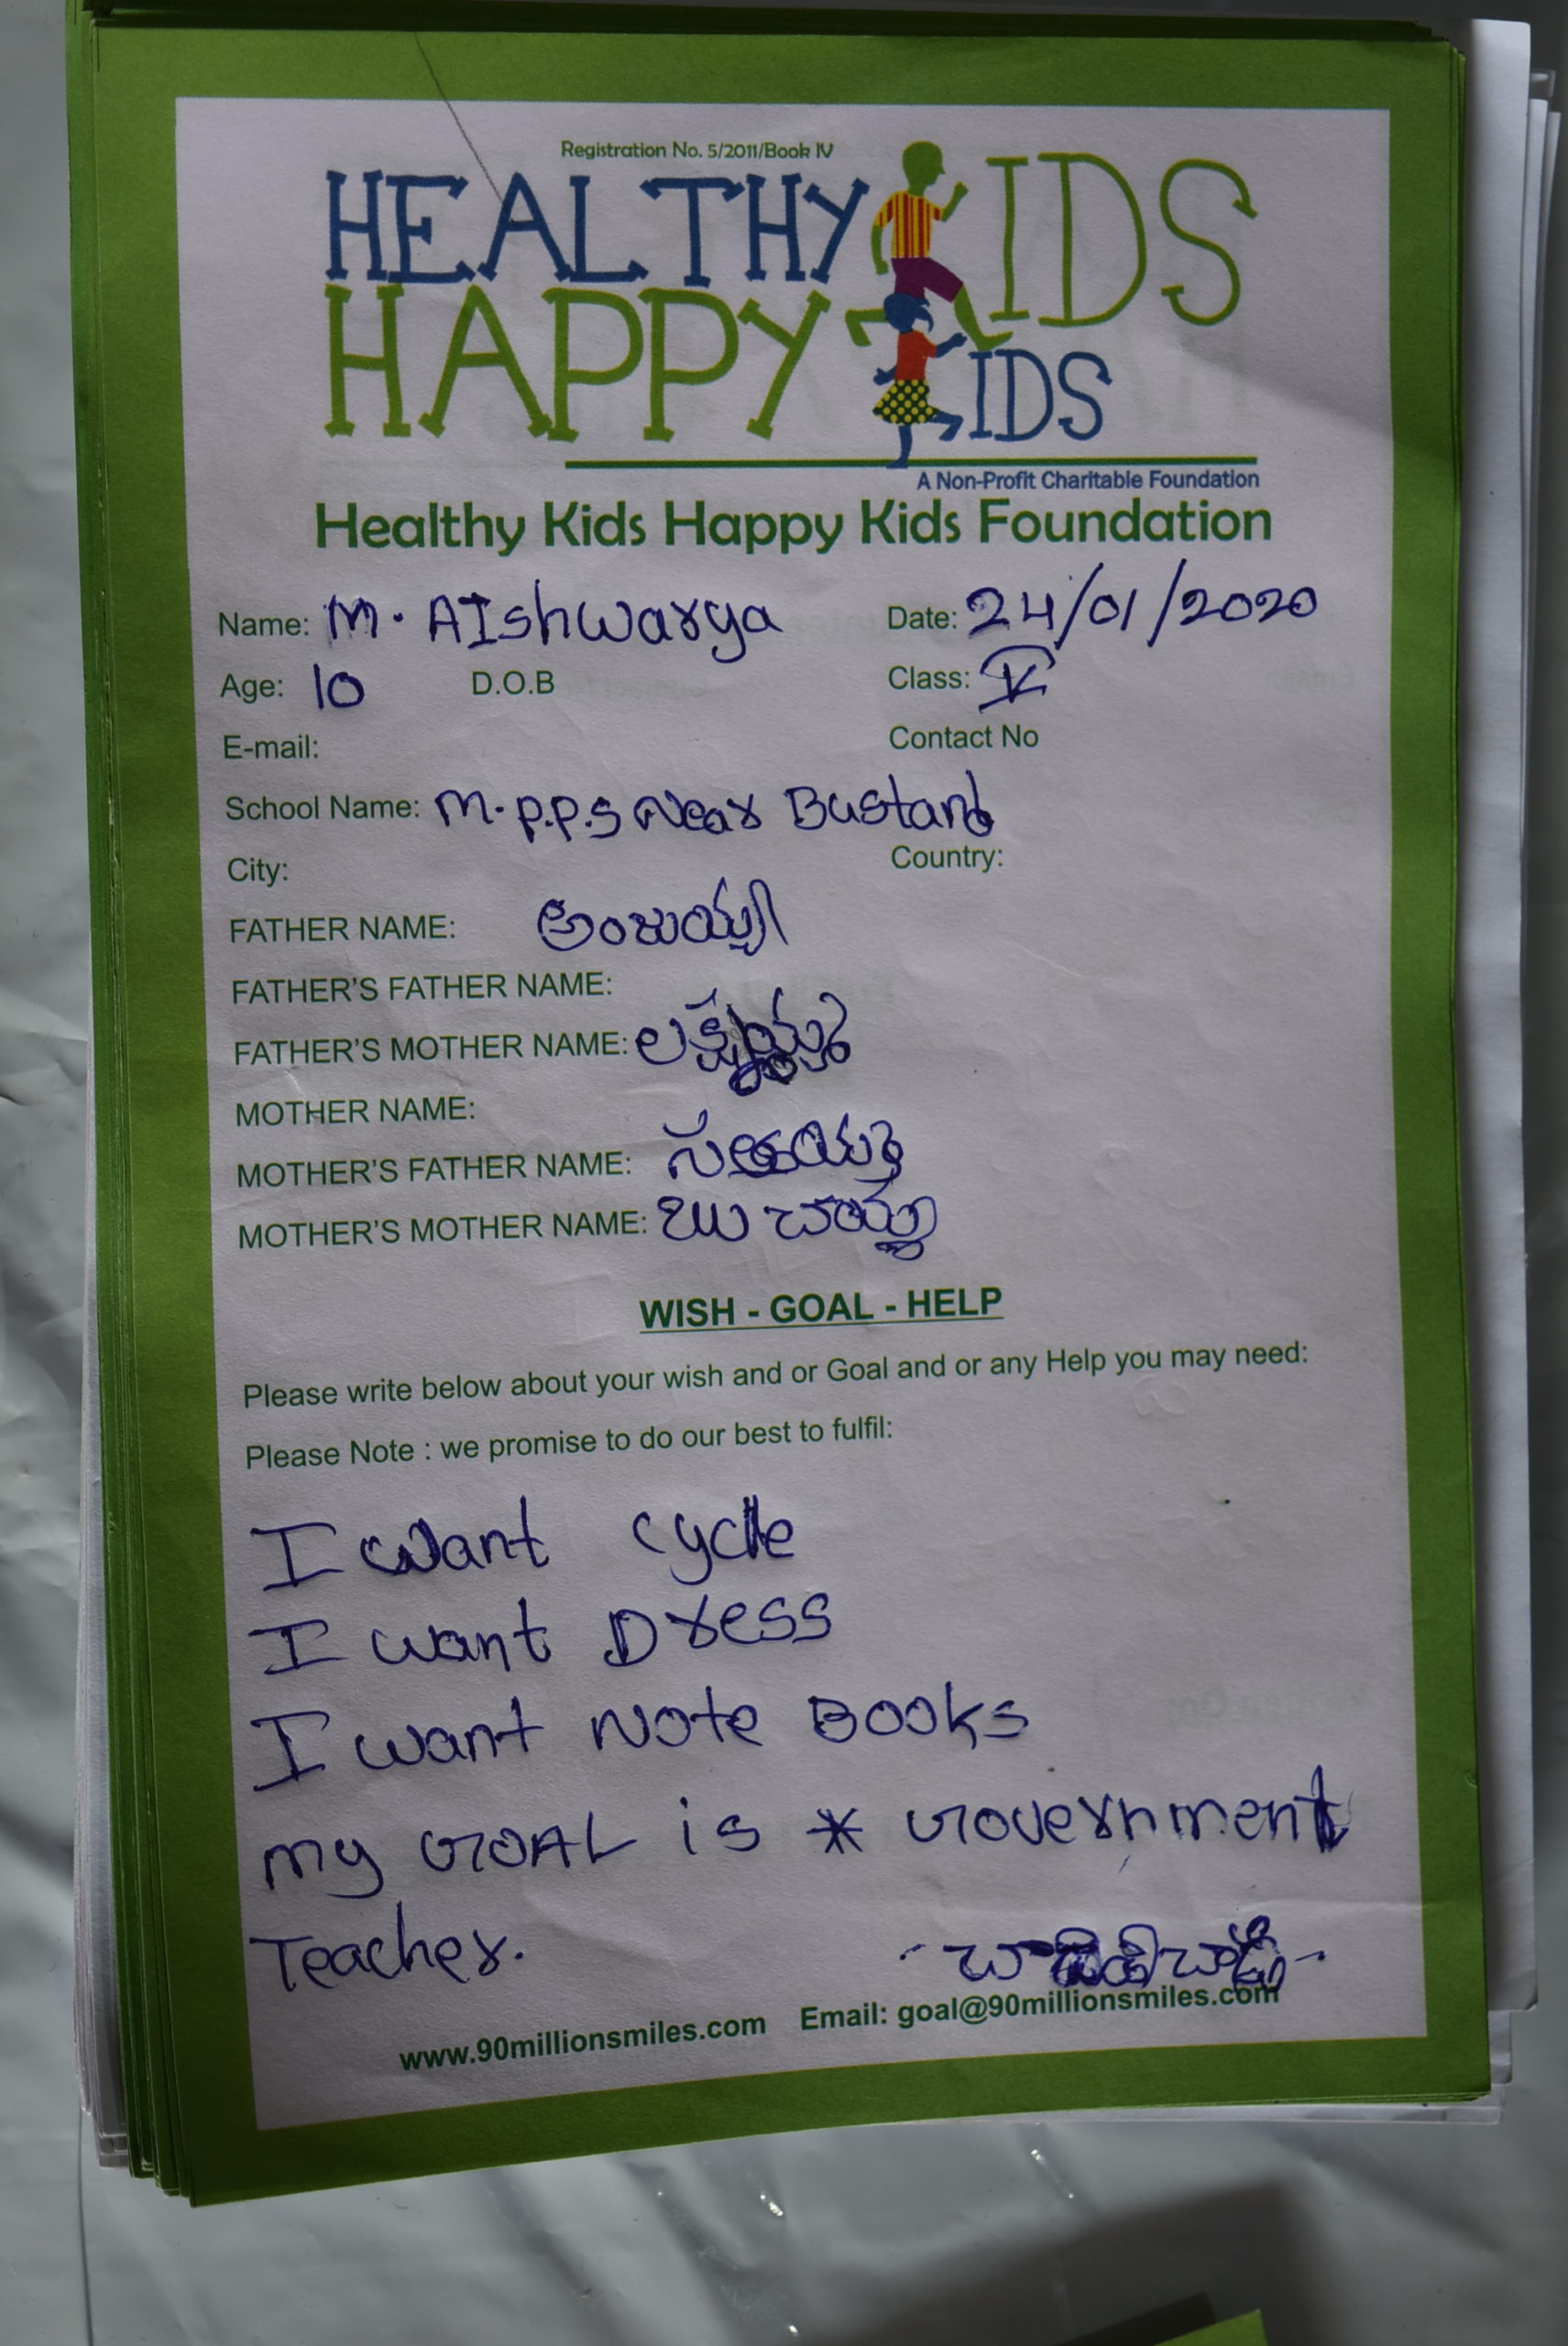 Registration No. 5/2011/Book IV
HEALTHY KIDS
HAPPY KIDS
A Non-Profit Charitable Foundation
Healthy Kids Happy Kids Foundation
Name: M. AIshwarya Date: 24/01/2020
Age: 10 D.O.B Class: V
E-mail: Contact No
School Name: M.P.P.S Near Bustand
City: Country:
FATHER NAME: అంజయ్య
FATHER'S FATHER NAME:
FATHER'S MOTHER NAME:
MOTHER NAME:
MOTHER'S FATHER NAME:
MOTHER'S MOTHER NAME:
WISH - GOAL - HELP
Please write below about your wish and or Goal and or any Help you may need:
Please Note : we promise to do our best to fulfil:
I want cycle
I want Dress
I want Note Books
my GOAL is * Government
Teacher.
www.90millionsmiles.com Email: goal@90millionsmiles.com